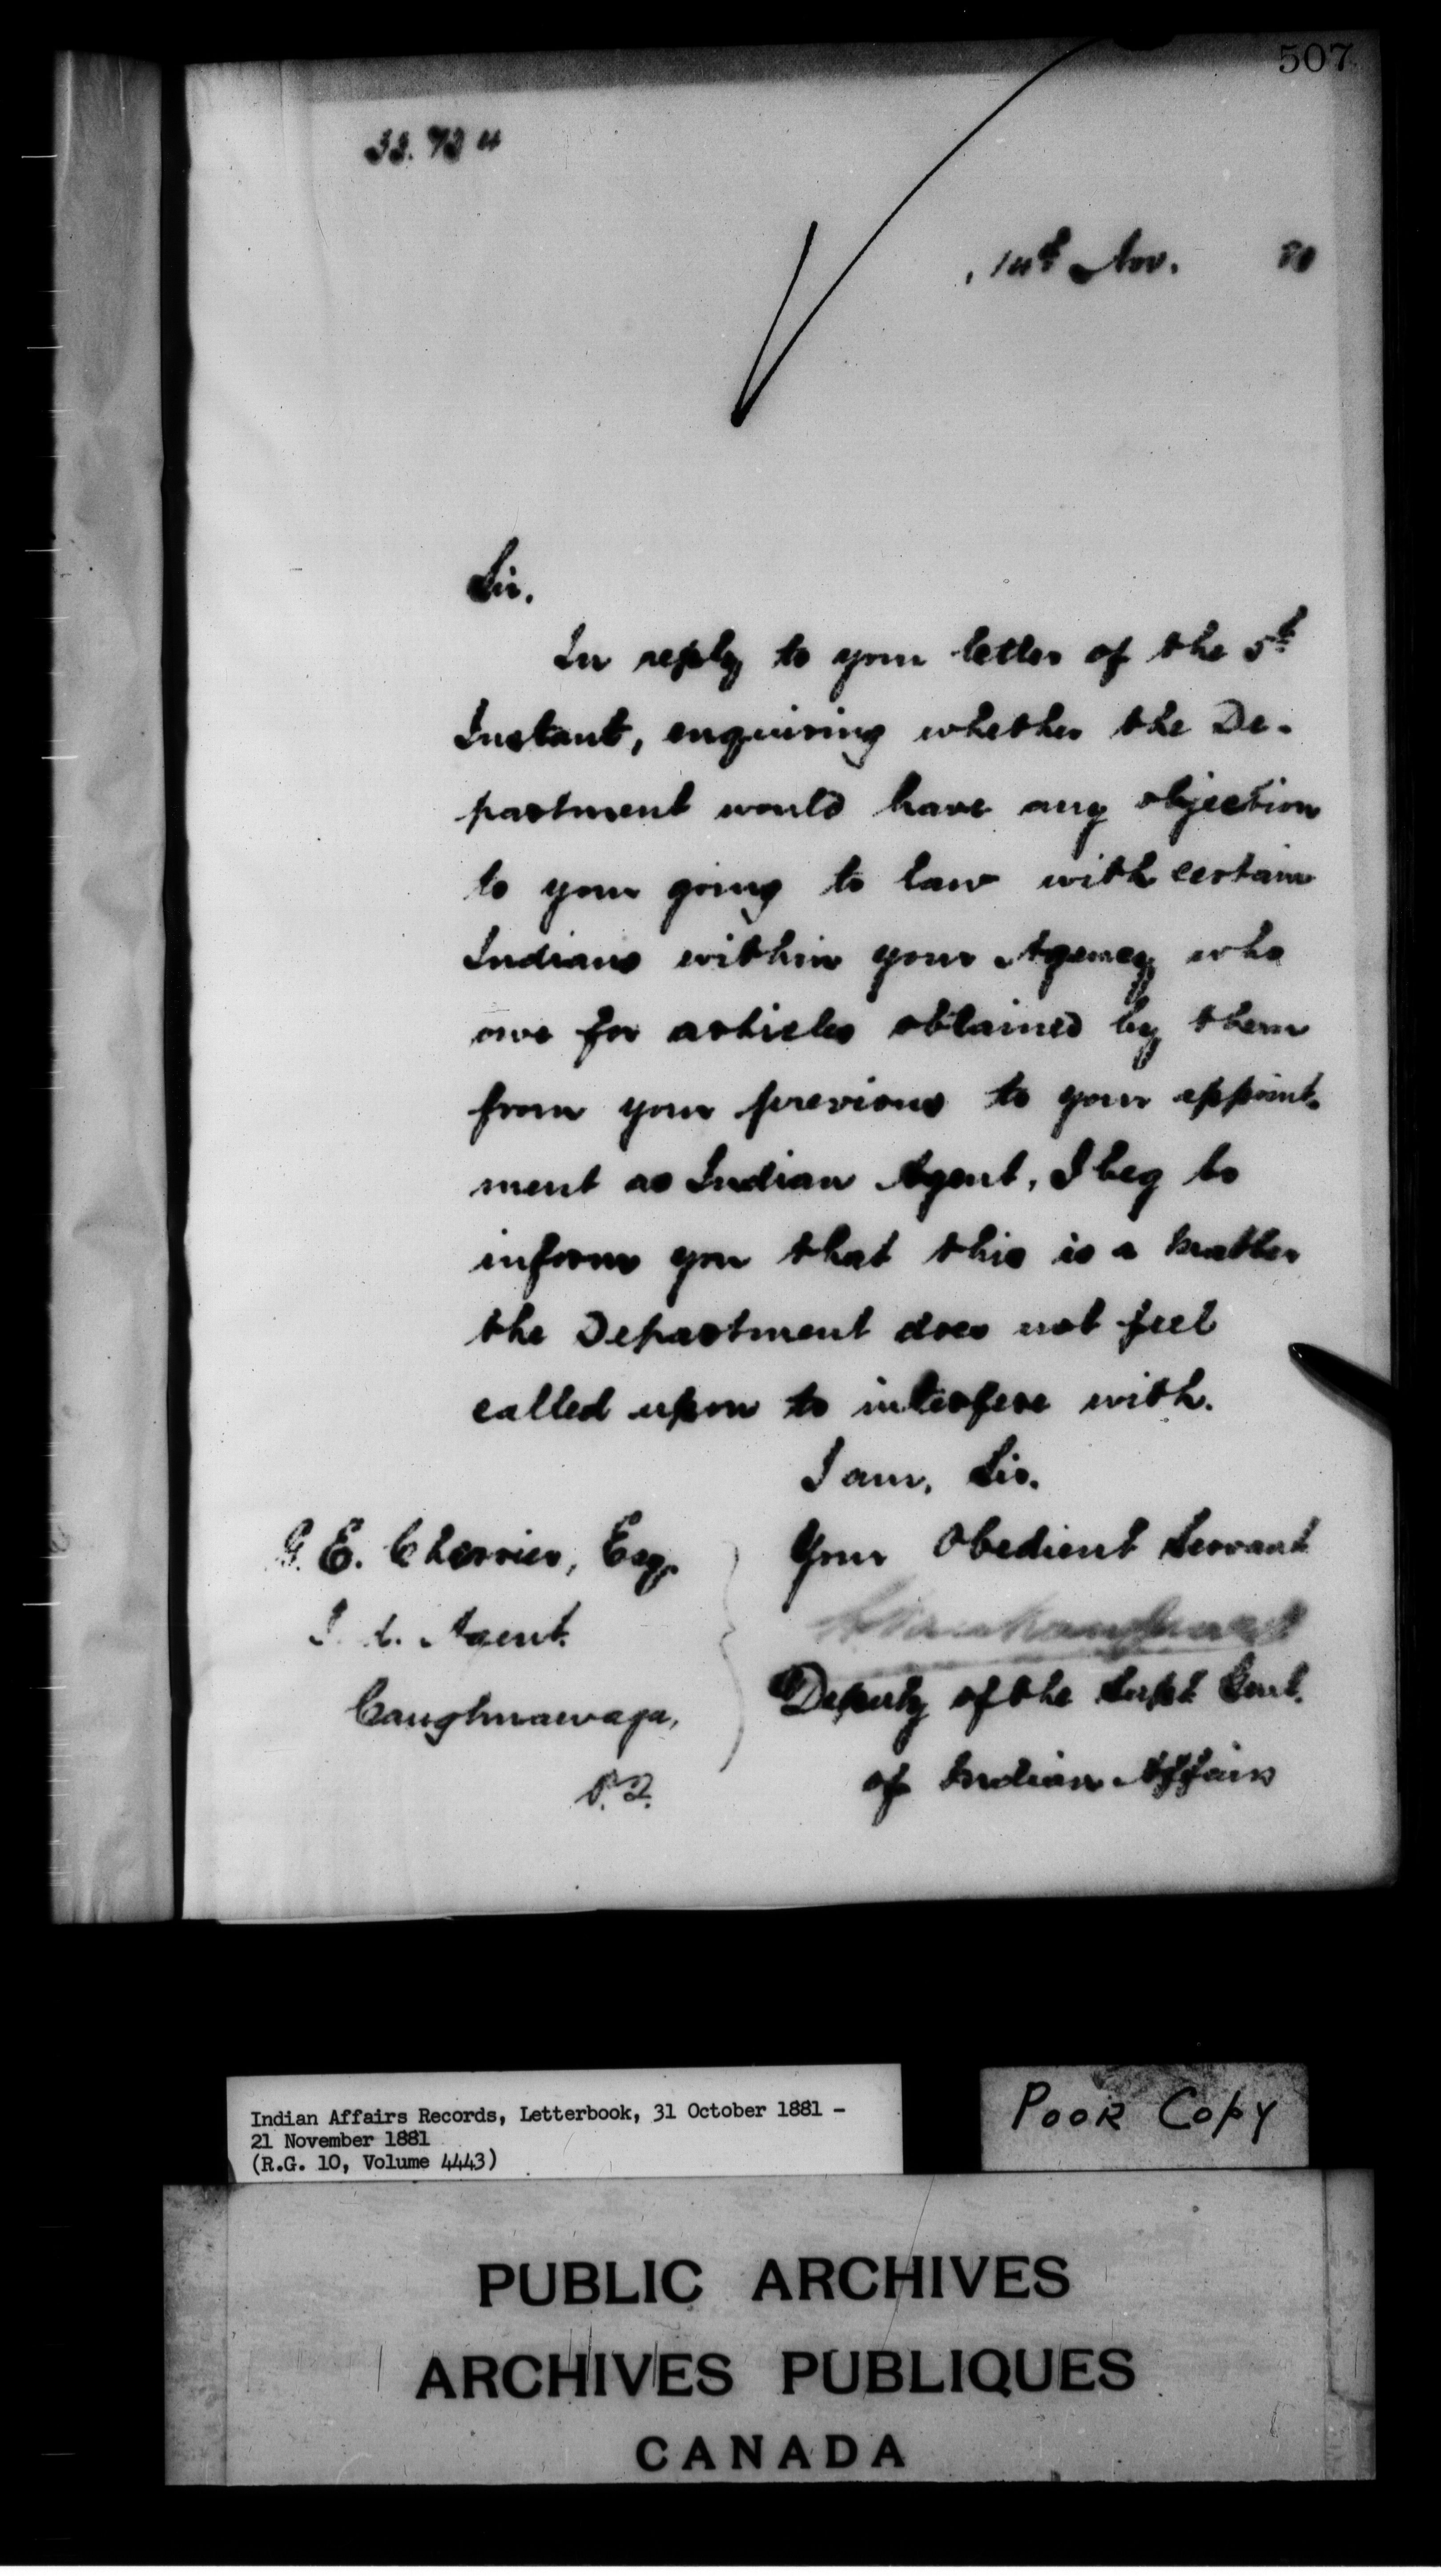 507
33.724
14th Nov.
Sir,
In reply to your letter of the 5th
Instant, enquiring whether the De-
partment would have any objection
to your going to law with certain
Indians within your Agency who
owe for articles obtained by them
from your previous to your appoint-
ment as Indian Agent, I beg to
inform you that this is a matter
the Department does not feel
called upon to interfere with.
I am, Sir,
Your Obedient Servant
Deputy of the Supt Genl.
of Indian Affairs
G. E. Cherrier, Esq.
Agent.
Caughnawaga,
P.Q.
Indian Affairs Records, Letterbook, 31 October 1881 -
21 November 1881
(R.G. 10, Volume 4443)
Poor Copy
PUBLIC ARCHIVES
ARCHIVES PUBLIQUES
CANADA